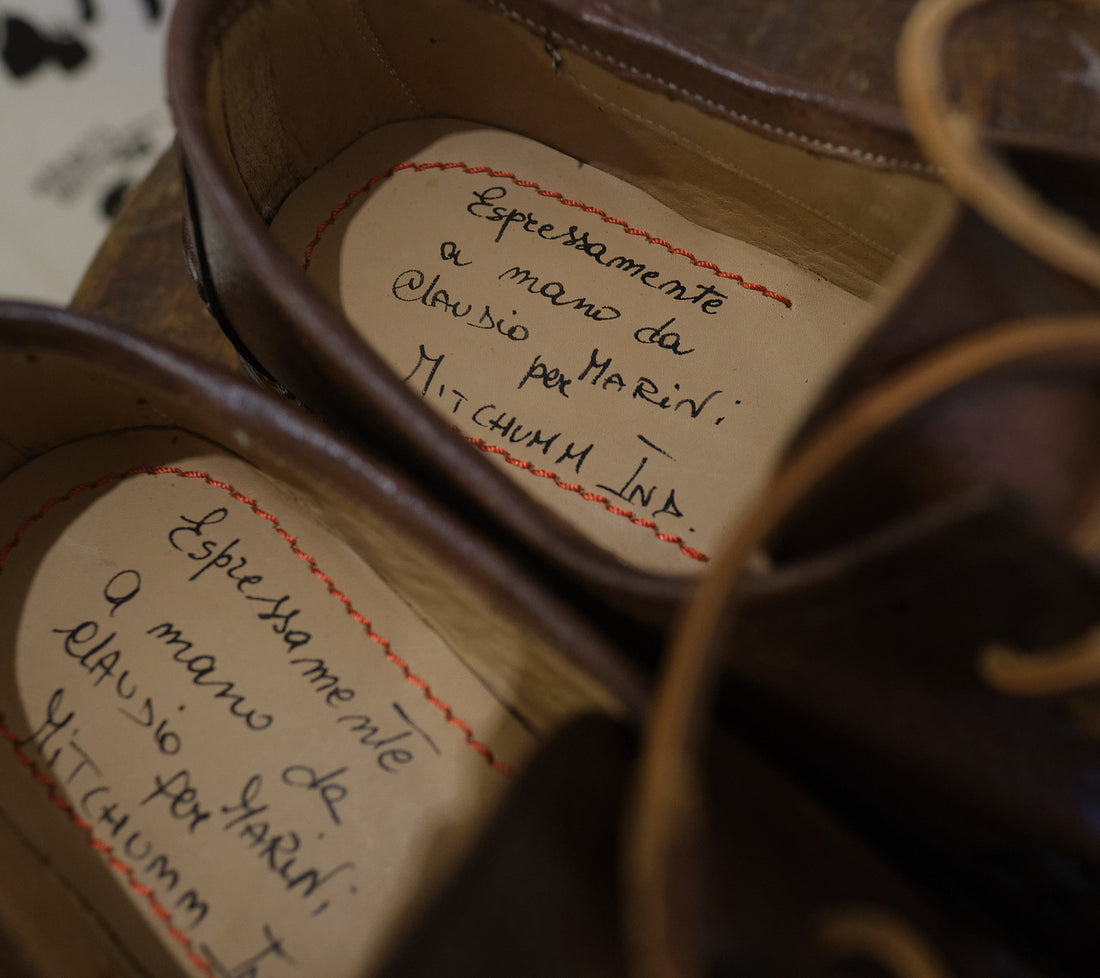 Espressamente
a mano da
CLAUDio per MARiNi
MiTCHUMM IND.
Espressamente
a mano da
CLAUDio per MARiNi
MiTCHUMM In